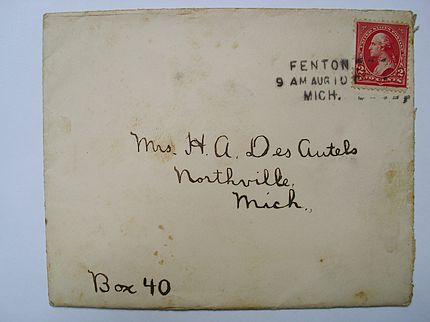 FENTON
9 AM AUG 10
MICH.
2 2
TWO CENTS
Mrs. H. A. Des Autels
Northville,
Mich.,
Box 40